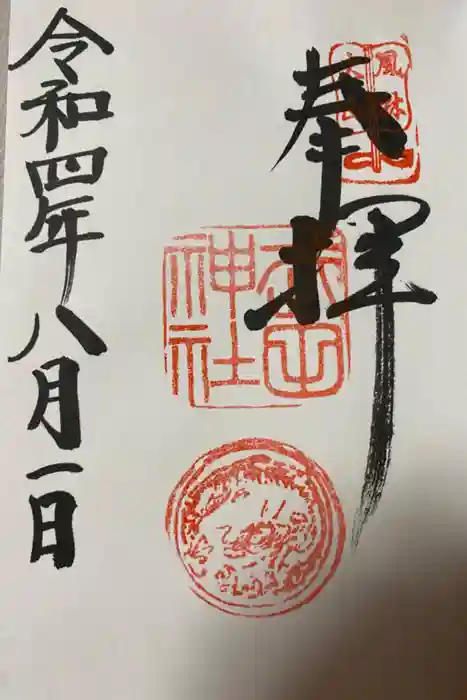 奉拝
風林
火山
武田
神社
令和四年八月一日